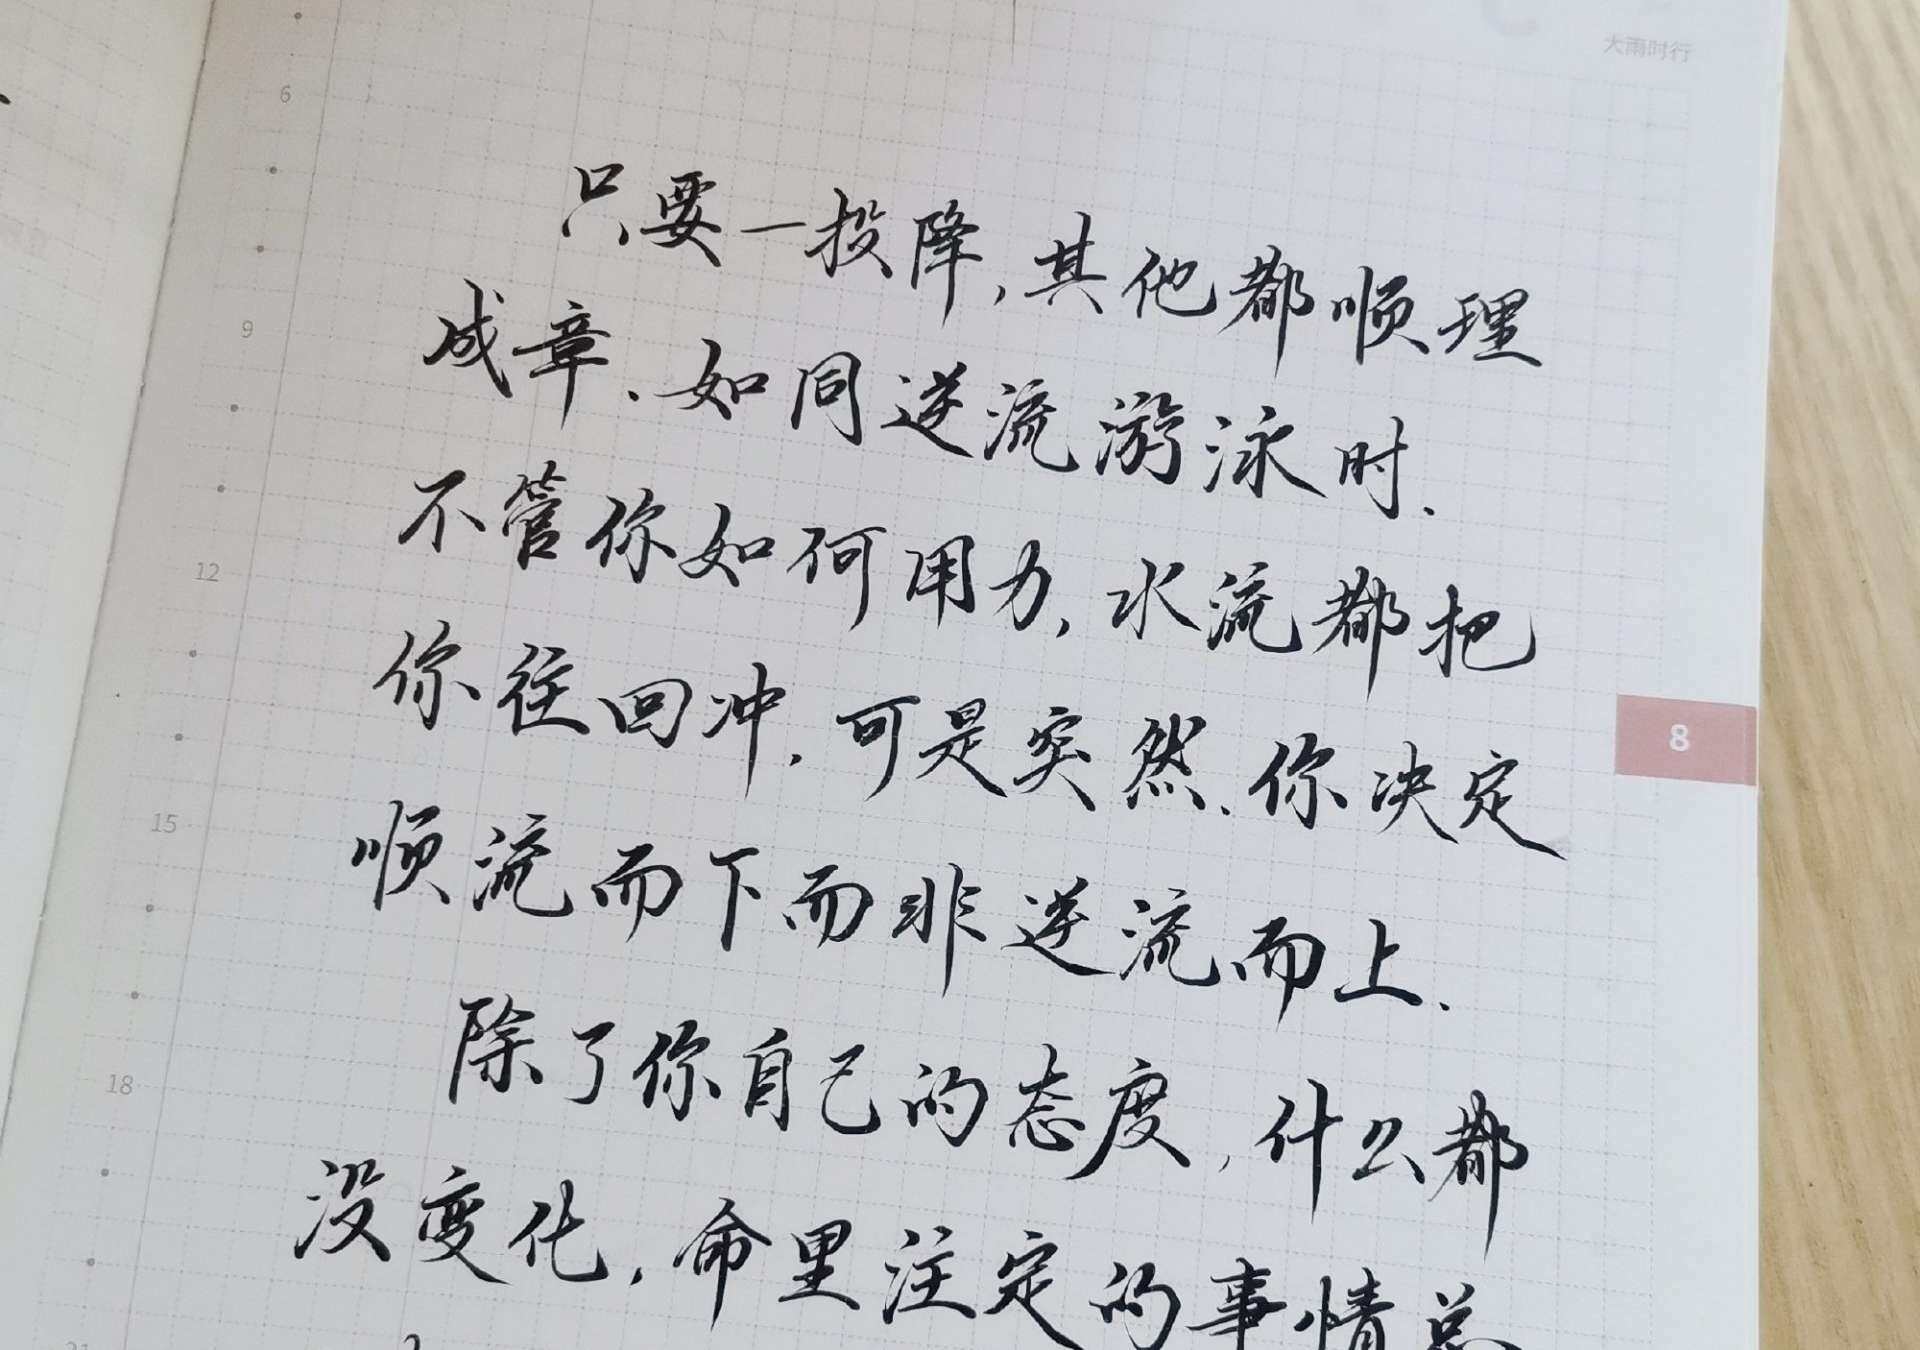 大雨时行
6
只要一投降,其他都顺理
成章.如同逆流游泳时.
9
不管你如何用力,水流都把
12
你往回冲.可是突然.你决定
8
顺流而下而非逆流而上.
15
除了你自己的态度,什么都
18
没变化,命里注定的事情总
21